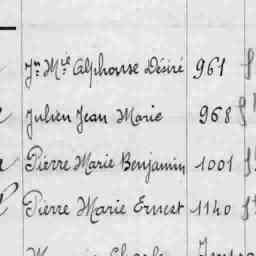 Jn Mie Alphonse Désiré 961
Julien Jean Marie 968
Pierre Marie Benjamin 1001
Pierre Marie Ernest 1140